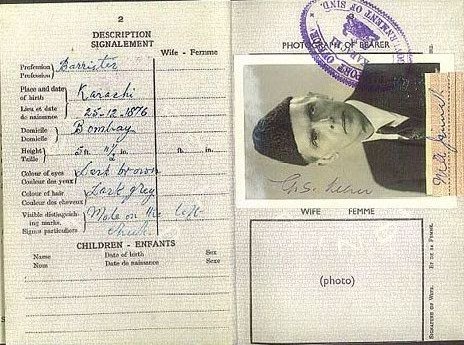 2
DESCRIPTION
SIGNALEMENT
Wife - Femme
Profession } Barrister
Profession
Place and date } Karachi
of birth
Lieu et date } 25-12-1876
de naissance
Domicile } Bombay
Domicile
Height } 5 ft. in. ft. in.
Taille
Colour of eyes } Dark brown
Couleur des yeux
Colour of hair } Dark grey
Couleur des cheveux
Visible distinguish- } Mole on the left
ing marks. cheek
Signes particuliers
CHILDREN - ENFANTS
Name Date of birth Sex
Nom Date de naissance Sexe
PHOTOGRAPH OF BEARER
GOVERNMENT OF SIND
PASSPORT OFFICE
KARACHI
WIFE FEMME
(photo)
SIGNATURE OF WIFE. ET DE SA FEMME.